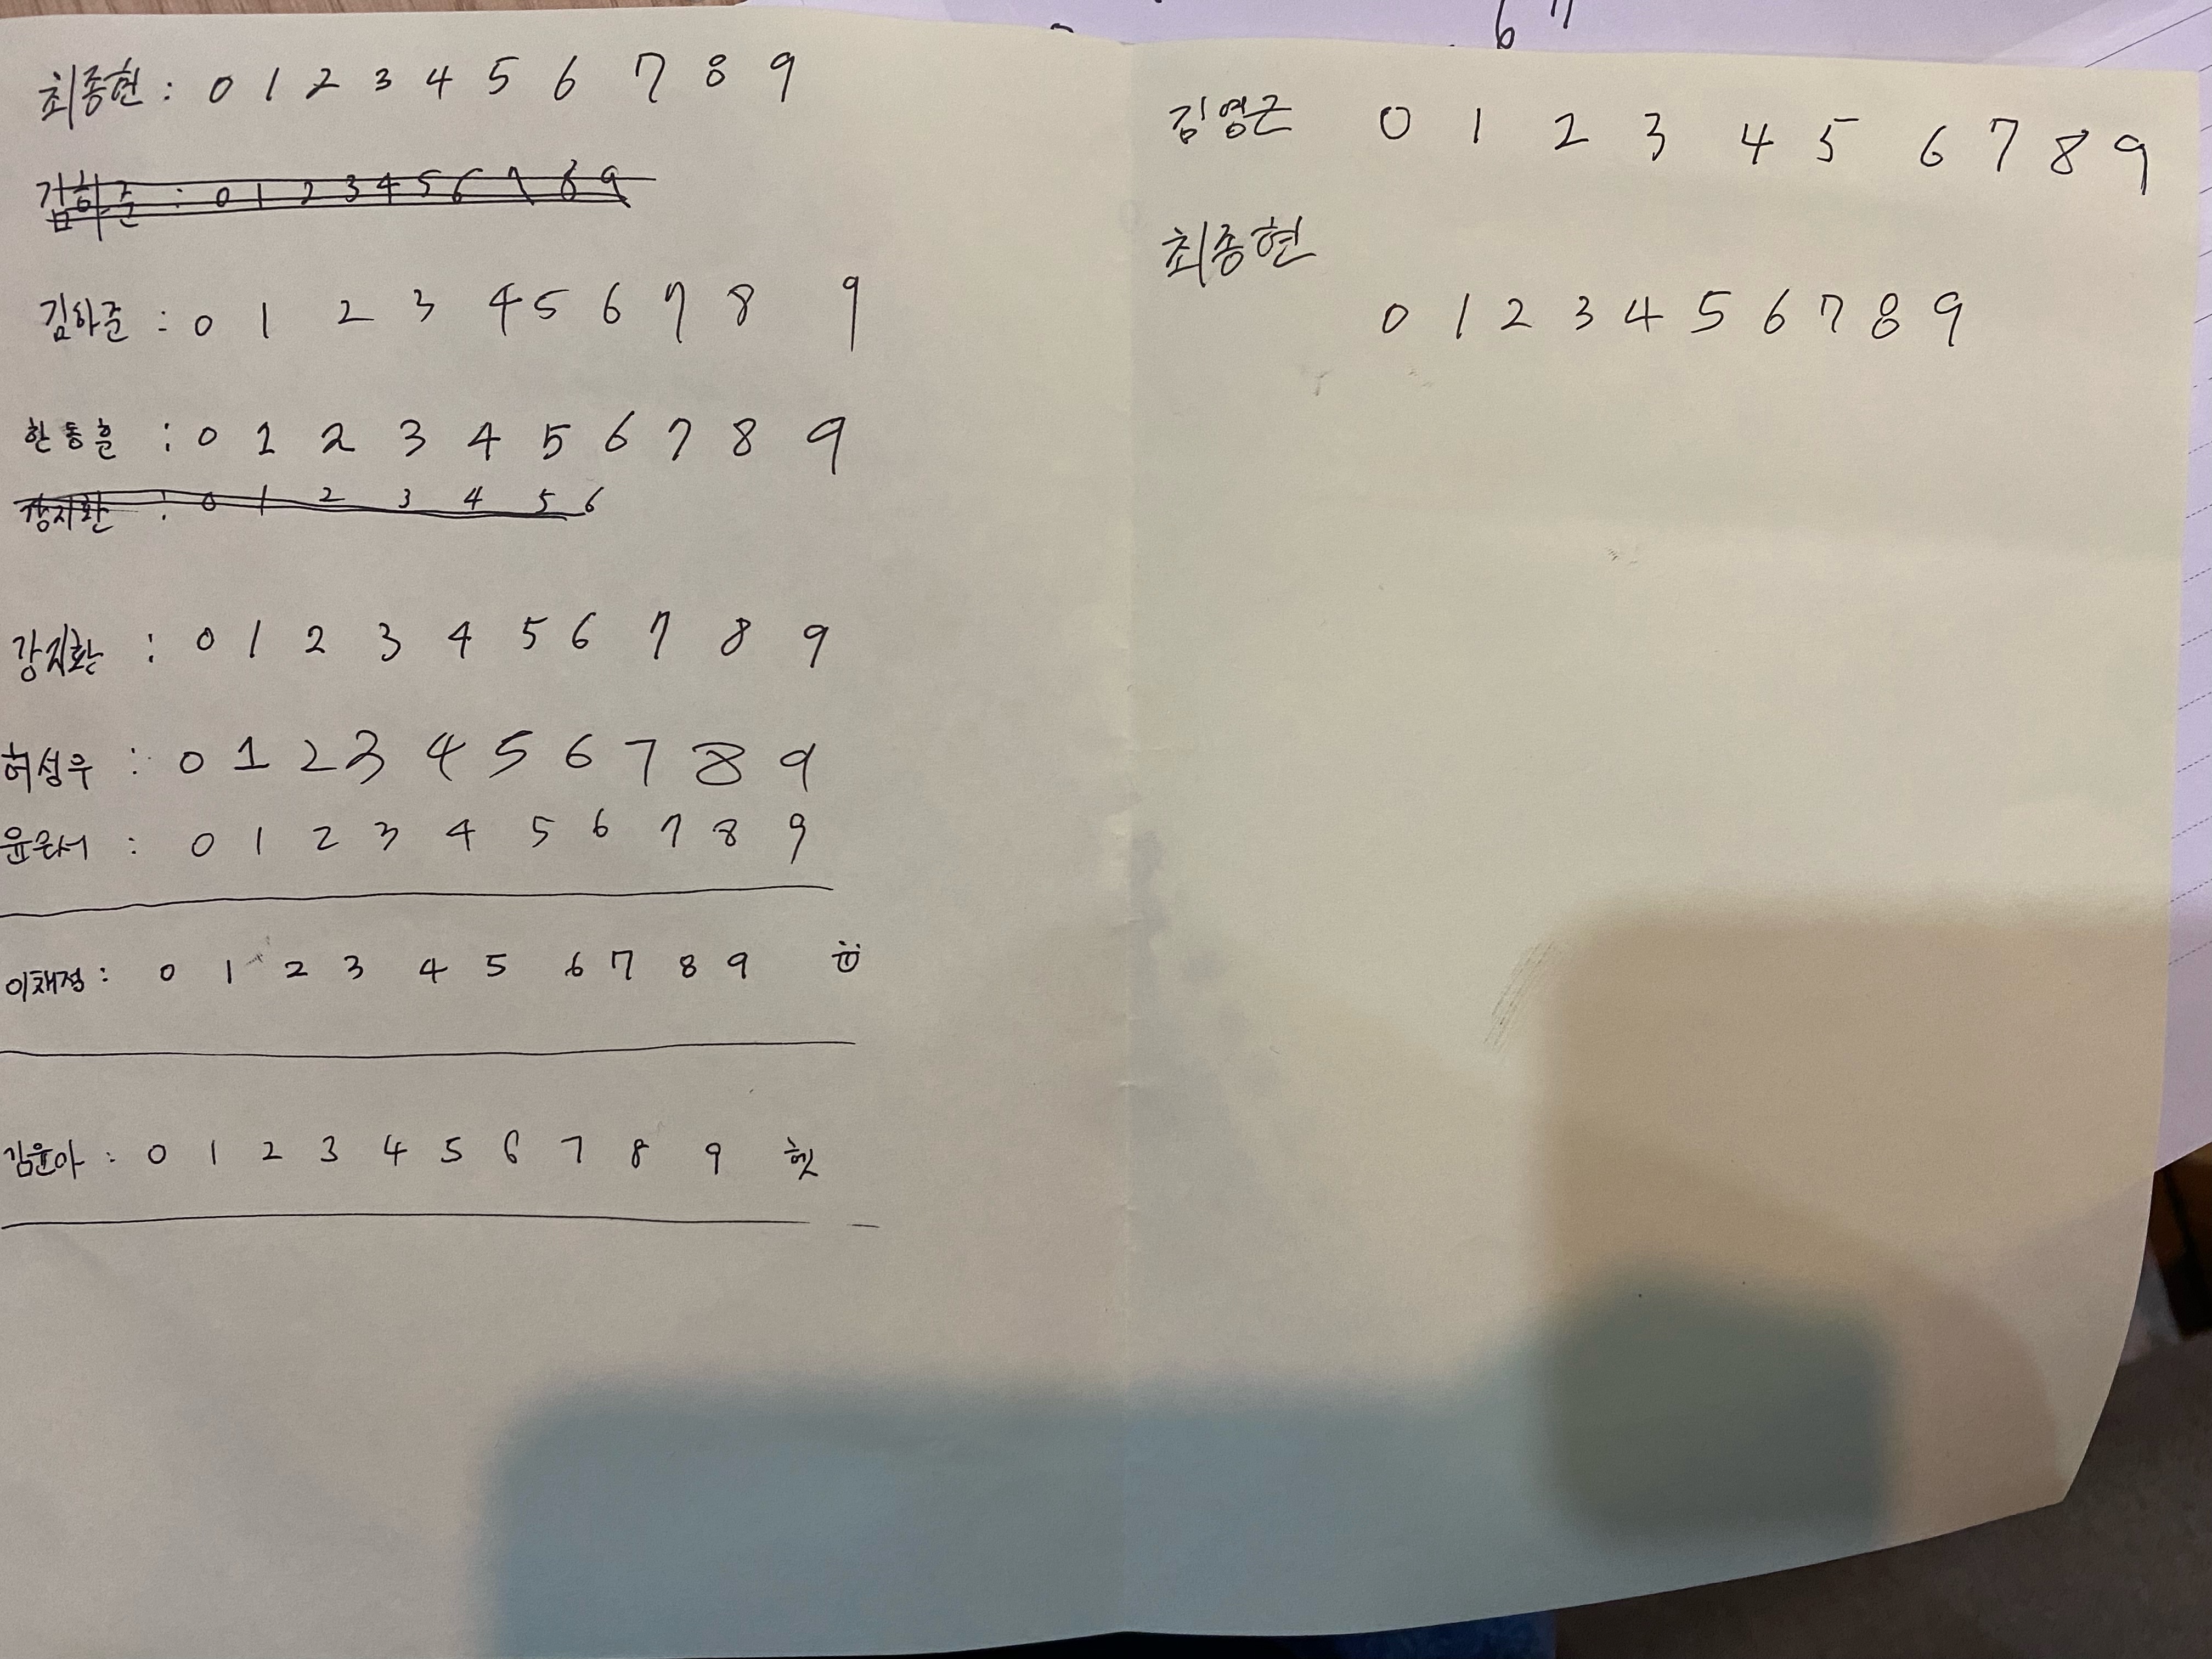 최종현 : 0 1 2 3 4 5 6 7 8 9
김하준 : 0 1 2 3 4 5 6 7 8 9
김하준 : 0 1 2 3 4 5 6 7 8 9
한동훈 : 0 1 2 3 4 5 6 7 8 9
강지환 : 0 1 2 3 4 5 6
강지환 : 0 1 2 3 4 5 6 7 8 9
허성우 : 0 1 2 3 4 5 6 7 8 9
윤은서 : 0 1 2 3 4 5 6 7 8 9
이채정 : 0 1 2 3 4 5 6 7 8 9
김윤아 : 0 1 2 3 4 5 6 7 8 9 헷
6 7
김영근 0 1 2 3 4 5 6 7 8 9
최종현
0 1 2 3 4 5 6 7 8 9